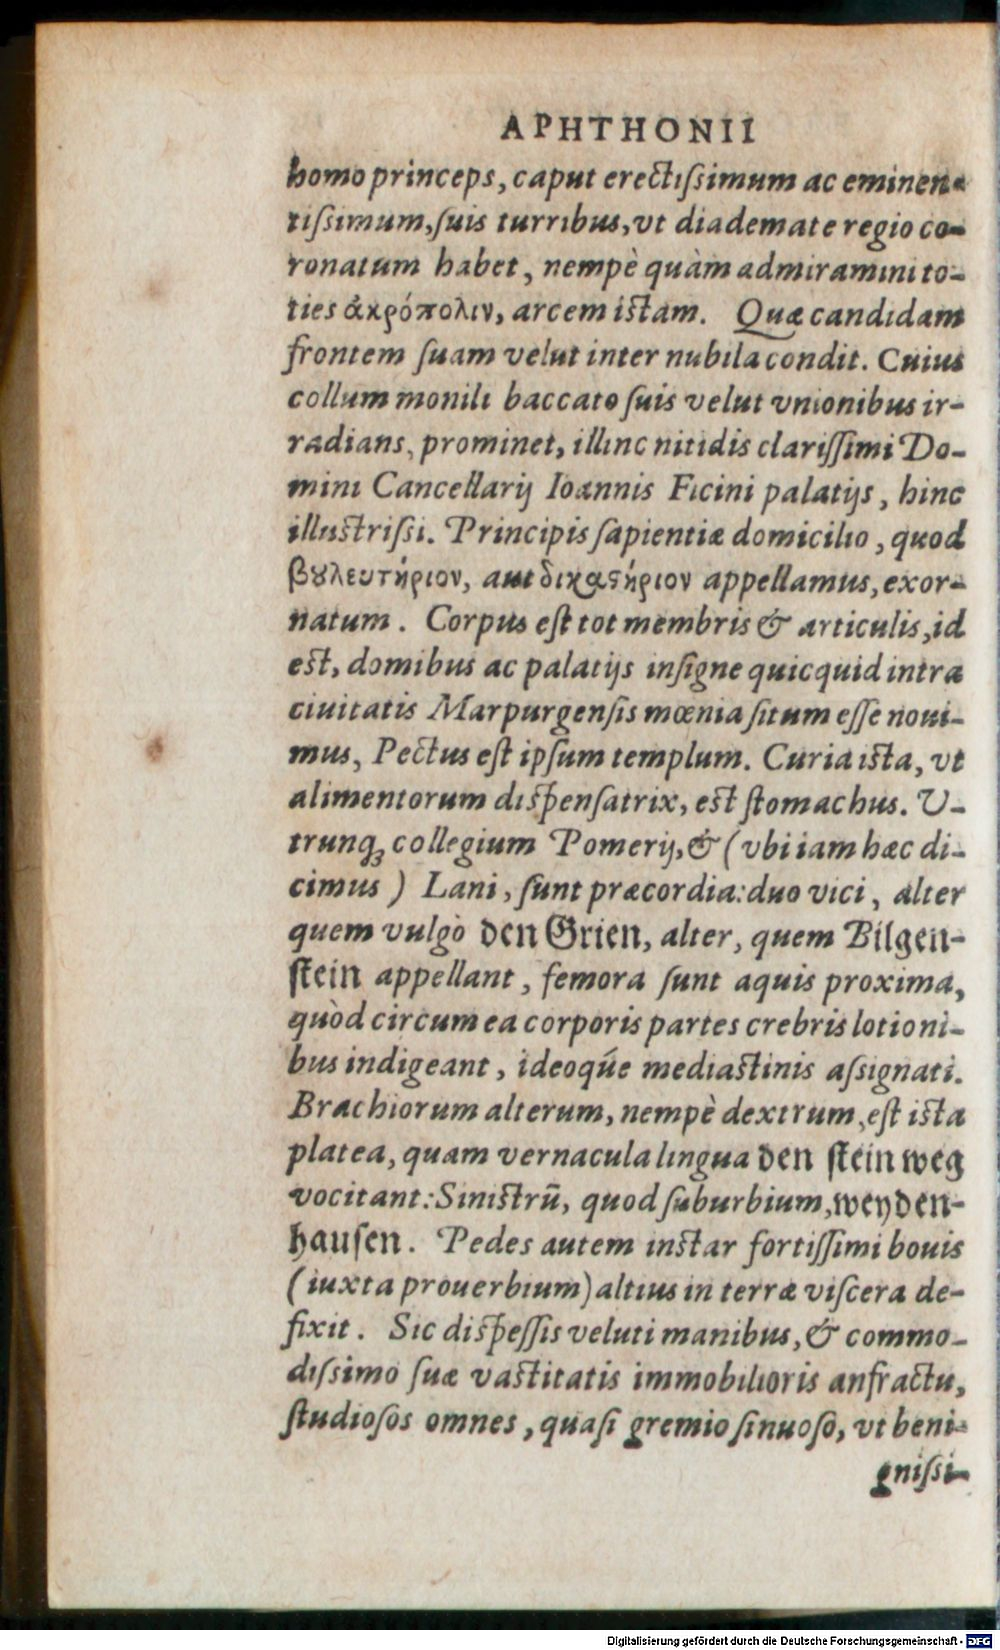 APHTHONII
homo princeps, caput erectiſsimum ac eminen-
tiſsimum, ſuis turribus, vt diademate regio co-
ronatum habet, nempè quàm admiramini to-
ties ἀκρόπολιν, arcem iſtam. Quæ candidam
frontem ſuam velut inter nubila condit. Cuius
collum monili baccato ſuis velut vnionibus ir-
radians, prominet, illinc nitidis clariſſimi Do-
mini Cancellarij Ioannis Ficini palatijs, hinc
illuſtriſsi. Principis ſapientiæ domicilio, quod
βȣλευτήριον, aut δικαϛήριον appellamus, exor-
natum. Corpus eſt tot membris & articulis, id
eſt, domibus ac palatijs inſigne quicquid intra
ciuitatis Marpurgenſis mœnia ſitum eſſe noui-
mus, Pectus eſt ipſum templum. Curia iſta, vt
alimentorum diſpenſatrix, eſt ſtomachus. V-
trunq; collegium Pomerij, & (vbi iam hæc di-
cimus) Lani, ſunt præcordia: duo vici, alter
quem vulgò den Grien, alter, quem Bilgen-
ſtein appellant, femora ſunt aquis proxima,
quòd circum ea corporis partes crebris lotioni-
bus indigeant, ideoq́ue mediaſtinis aſsignati.
Brachiorum alterum, nempè dextrum, eſt iſta
platea, quam vernacula lingua den ſtein weg
vocitant: Siniſtrũ, quod ſuburbium, weyden-
hauſen. Pedes autem inſtar fortiſſimi bouis
(iuxta prouerbium) altius in terræ viſcera de-
fixit. Sic diſpeſſis veluti manibus, & commo-
diſsimo ſuæ vaſtitatis immobilioris anfractu,
ſtudioſos omnes, quaſi gremio ſinuoſo, vt beni-
gniſsi-
Digitalisierung gefördert durch die Deutsche Forschungsgemeinschaft - DFG